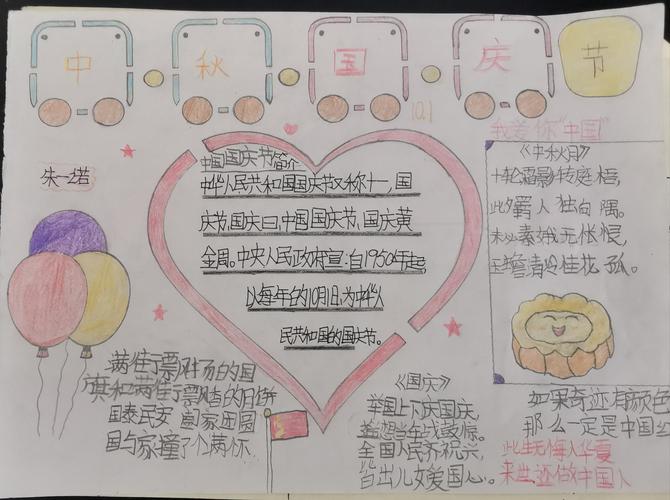 中秋国庆节
10.1
我爱你"中国"
朱一诺
中国国庆节简介
中华人民共和国国庆节又称十一,国
庆节,国庆日,中国国庆节,国庆黄
金周。中央人民政府宣:自1950年起,
以每年的10月1日,为中华人
民共和国的国庆节。
《中秋月》
十轮霜影转庭梧,
此夕羁人独向隅。
未必素娥无怅恨,
玉蟾清冷桂花孤。
满街了飘扬的国
旗和满街了飘香的月饼
国泰民安 阖家团圆
国与家撞了个满怀
《国庆》
举国上下庆国庆,
遥想当年战鼓惊。
全国人民齐祝兴,
皆出儿女爱国心。
如果奇迹有颜色
那么一定是中国红
此生无悔入华夏
来世还做中国人